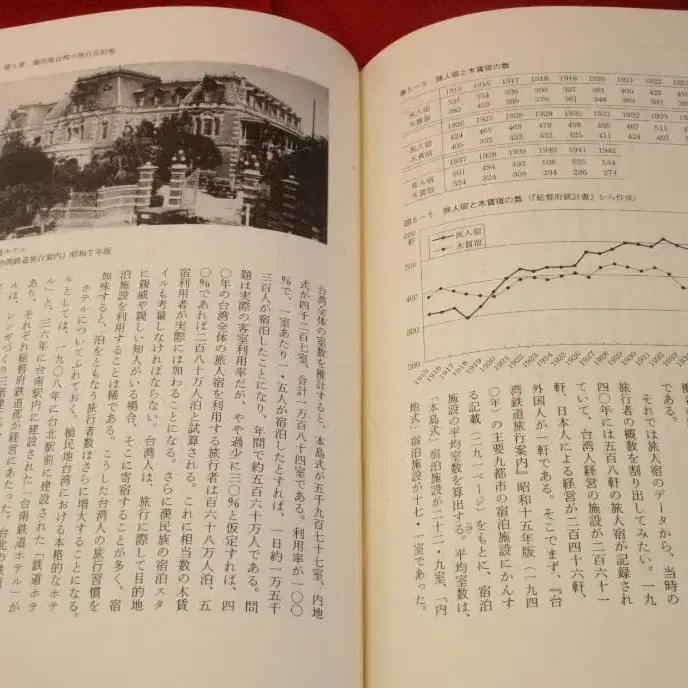 表5－5　旅人宿と木賃宿の数
1915 1916 1917 1918 1919 1920 1921 1922
旅人宿 335 334 300 327 381 409 423
木賃宿 385 402 389 376 361 348 369 393
1926 1927 1928 1929 1930 1931 1932 1933
旅人宿 424 467 463 473 498 495 487 511
木賃宿 405 422 452 425 411 424 407
1937 1938 1939 1940 1941 1942
旅人宿 501 494 492 508 525 544
木賃宿 334 324 308 294 286 274
図5－5　旅人宿と木賃宿の数（『総督府統計書』から作成）
600
軒
500
400
300
200
旅人宿
木賃宿
1915 1916 1917 1918 1919 1920 1921 1922 1923 1924 1925 1926 1927 1928 1929 1930 1931 1932
である。
それでは旅人宿のデータから、当時の
旅行者の概数を割り出してみたい。一九
四〇年には五百八軒の旅人宿が記録され
ていて、台湾人経営の施設が二百六十一
軒、日本人による経営が二百四十六軒、
外国人が一軒である。そこでまず、『台
湾鉄道旅行案内』昭和十五年版（一九四
〇年）の主要九都市の宿泊施設にかんす
る記載（二九一ページ）をもとに、宿泊
施設の平均室数を算出する。平均室数は、
「本島式」宿泊施設が二十二・九室、「内
地式」宿泊施設が十七・一室であった。
第5章　植民地台湾の旅行目的地
ホテル
台湾鉄道旅行案内』昭和7年版
台湾全体の室数を推計すると、本島式が五千九百七十七室、内地
式が四千二百七室、合計一万百八十四室である。利用率が一〇〇
％で、一室あたり一・五人が宿泊したとすれば、一日約一万五千
三百人が宿泊したことになり、年間で約五百六十万人である。問
題は実際の客室利用率だが、やや過少に三〇％と仮定すれば、四
〇年の台湾全体の旅人宿を利用する旅行者は百六十八万人泊、五
〇％であれば二百八十万人泊と試算される。これに相当数の木賃
宿利用者が実際には加わることになる。さらに漢民族の宿泊スタ
イルも考量しなければならない。台湾人は、旅行に際して目的地
に親戚や親しい知人がいる場合、そこに寄宿することが多く、宿
泊施設を利用することは稀である。こうした台湾人の旅行習慣を
加味すると、泊をともなう旅行者数はさらに増大することになる。
ホテルについてふれておく。植民地台湾における本格的なホテ
ルとしては、一九〇八年に台北駅前に建設された「鉄道ホテ
ル」と、三六年に台南駅内に建設された「台南鉄道ホテル」が
あり、それぞれ総督府鉄道部が経営にあたった。台北の鉄道
ルは、レンガづくり三階建て